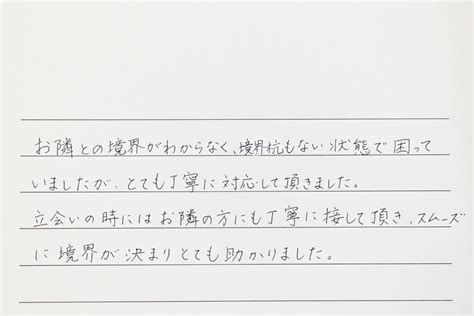 お隣との境界がわからなく、境界杭もない状態で困って
いましたが、とても丁寧に対応して頂きました。
立会いの時にはお隣の方にも丁寧に接して頂き、スムーズ
に境界が決まりとても助かりました。